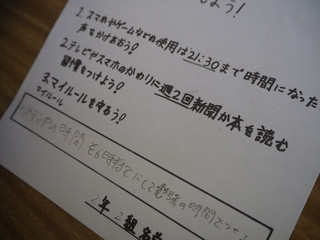 よう!
1.スマホやゲームなどの使用は21:30まで時間になった
声をかけあおう!
2.テレビやスマホのかわりに週2回新聞か本を読む
習慣をつけよう!
3.マイルールを守ろう!
マイルール
メディアの時間を6時までにして勉強の時間を
2年2組名前